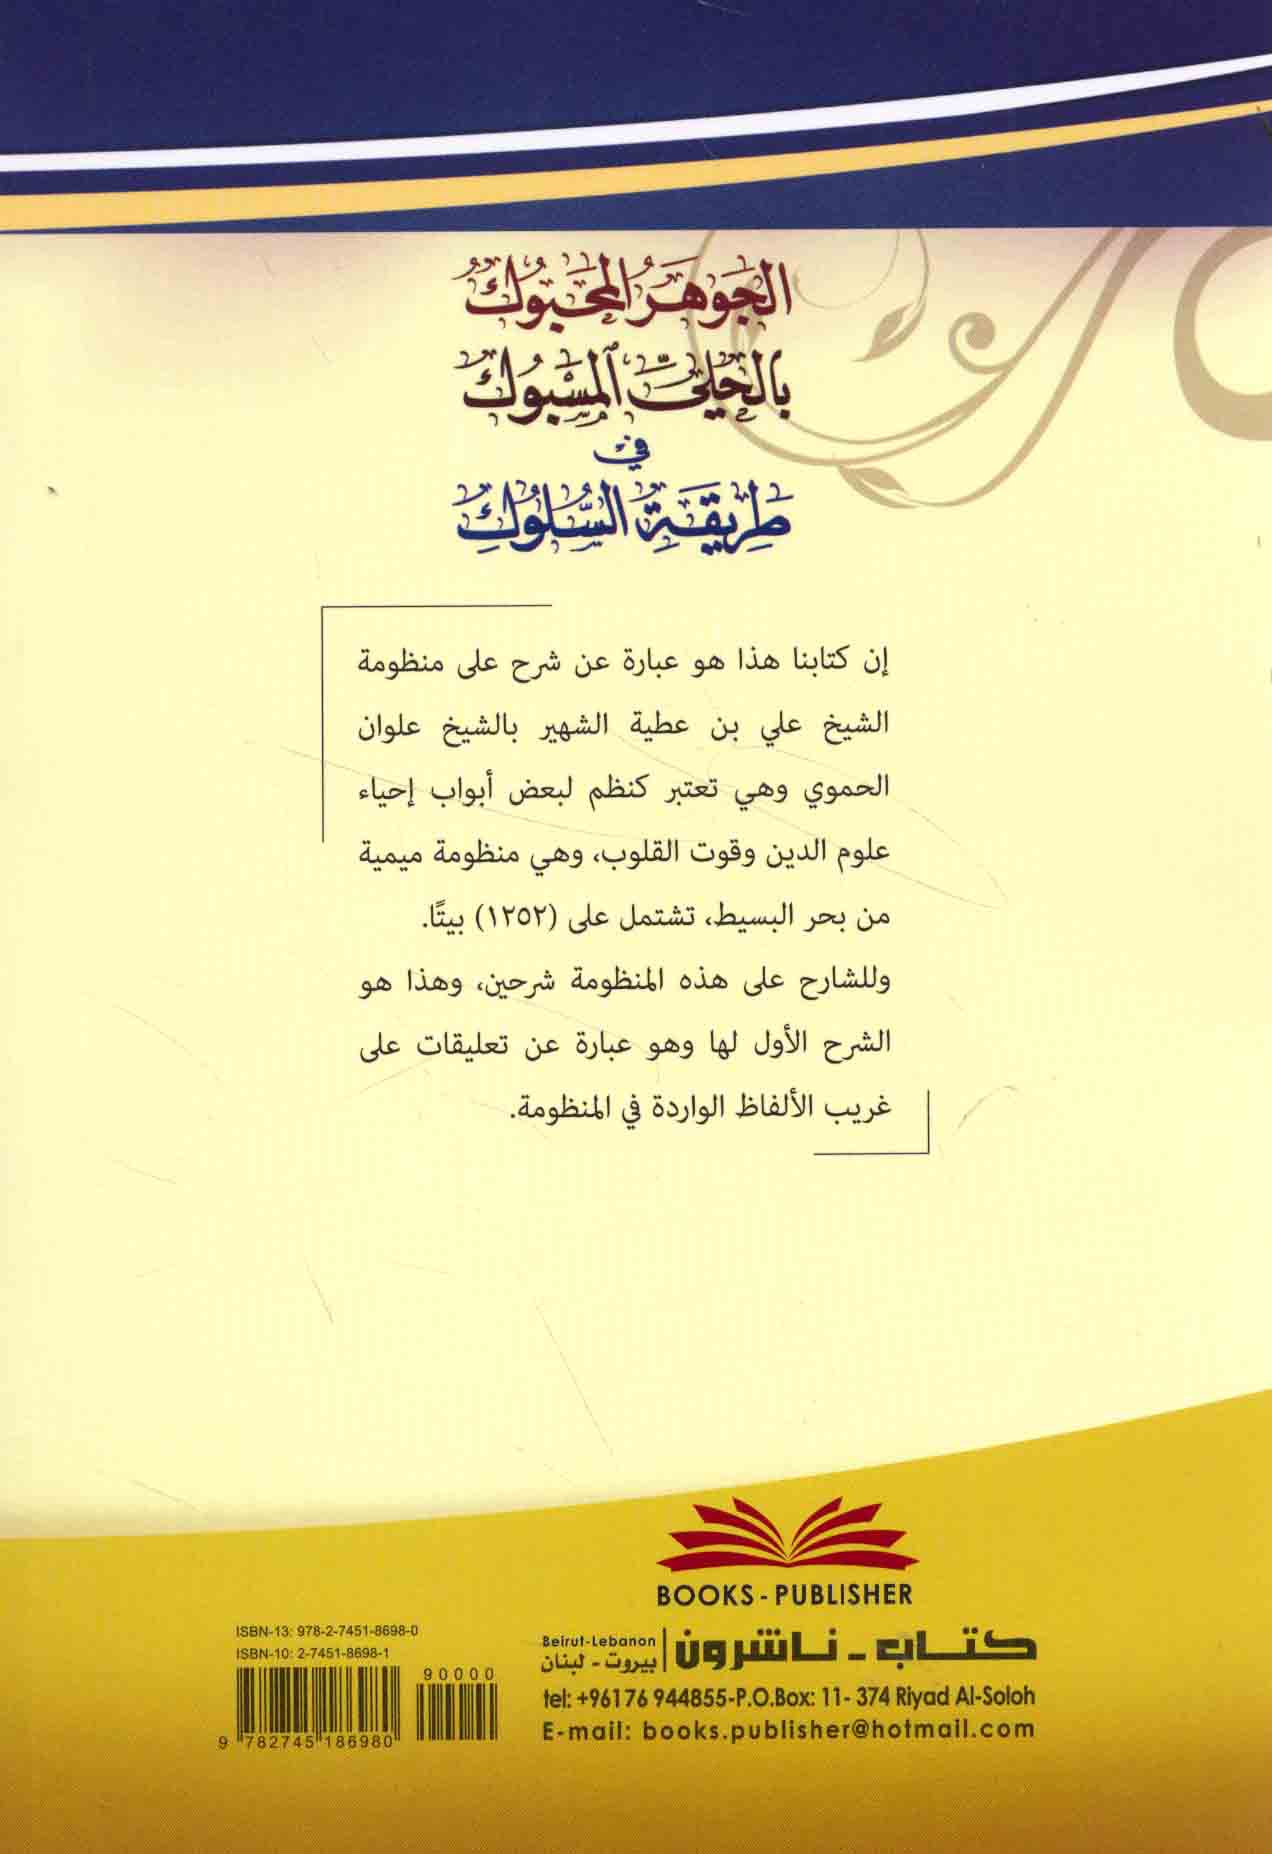 الجَوْهَرُ المَحْبُوكُ
بِالحُلِيِّ المَسْبُوكِ
في
طَرِيقَةِ السُّلُوكِ
إن كتابنا هذا هو عبارة عن شرح على منظومة
الشيخ علي بن عطية الشهير بالشيخ علوان
الحموي وهي تعتبر كنظم لبعض أبواب إحياء
علوم الدين وقوت القلوب، وهي منظومة ميمية
من بحر البسيط، تشتمل على (١٢٥٢) بيتًا.
وللشارح على هذه المنظومة شرحين، وهذا هو
الشرح الأول لها وهو عبارة عن تعليقات على
غريب الألفاظ الواردة في المنظومة.
BOOKS - PUBLISHER
كتاب - ناشرون
Beirut-Lebanon
بيروت - لبنان
tel: +96176 944855-P.O.Box: 11- 374 Riyad Al-Soloh
E-mail: books.publisher@hotmail.com
ISBN-13: 978-2-7451-8698-0
ISBN-10: 2-7451-8698-1
90000
9 782745 186980